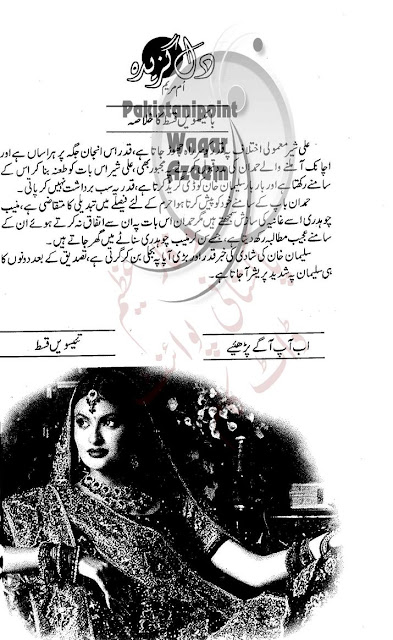 دل گزیدہ
اُم مریم
Pakistanipoint
بائیسویں قسط کا خلاصہ
Waqar
Azeem
علی شیر معمولی اختلاف پہ قدر کو چھوڑ جاتا ہے، قدر اس انجان جگہ پر ہراساں ہے اور
اچانک آملنے والے حمدان کی پہ مجبور بھی، علی شیر اس بات کو طعنہ بنا کر اس کے
سامنے رکھتا ہے اور بار بار سلیمان خان کو ڈی گریڈ کرتا ہے، قدر یہ سب برداشت نہیں کر پاتی۔
حمدان باپ کے سامنے خود کو پیش کرتا ہوا حرم کے لئے فیصلے میں تبدیلی کا متقاضی ہے، منیب
چوہدری اسے غانیہ کی سازش سمجھتے ہیں مگر حمدان اس بات پہ ان سے اتفاق نہ کرتے ہوئے ان کے
سامنے عجیب مطالبہ رکھ دیتا ہے، جسے سن کر منیب چوہدری سناٹے میں گھر جاتے ہیں۔
سلیمان خان کی شادی کی خبر قدر اور بڑی آپا پہ بجلی بن کر گرتی ہے، تصدیق کے بعد دونوں کا
ہی سلیمان پہ شدید پریشر آ جاتا ہے۔
اب آپ آگے پڑھیئے
تیسویں قسط